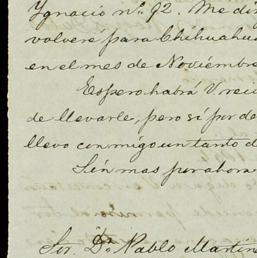 Ygnacio nº 92. Me di
volveré para Chihuahu
en el mes de Noviembre
Espero habrá V. reci
de llevarle, pero sí por de
llevo conmigo un tanto d
Sin mas por ahora
Sor. Dn. Pablo Martin